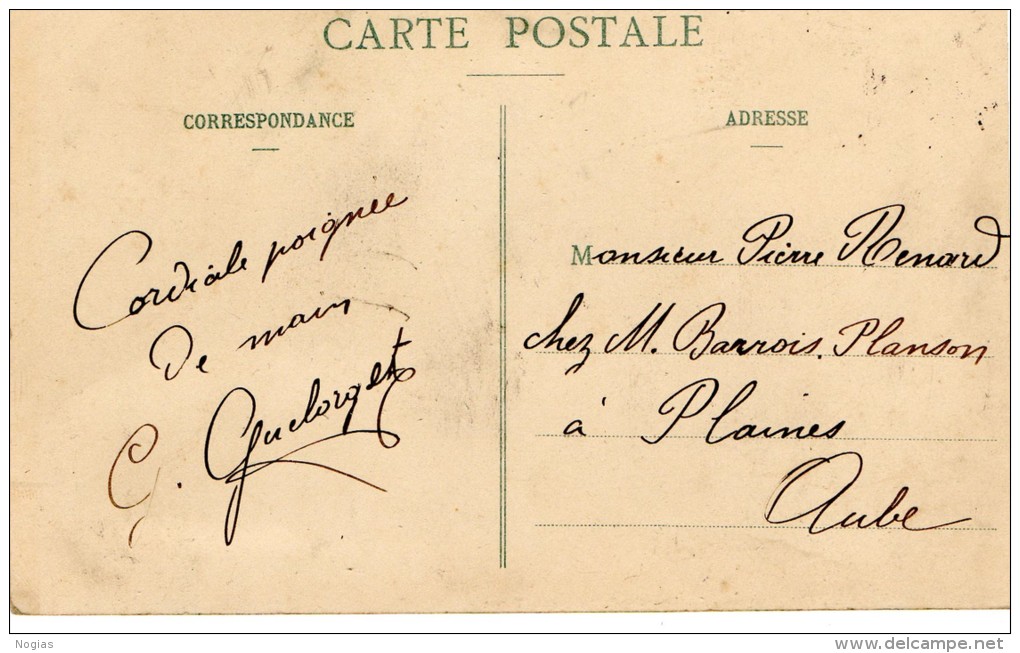 CARTE POSTALE
CORRESPONDANCE
Cordiale poignée
De main
G. Guelorget
ADRESSE
Monsieur Pierre Renard
chez M. Barrois. Planson
à Plaines
Aube
Nogias
www.delcampe.net